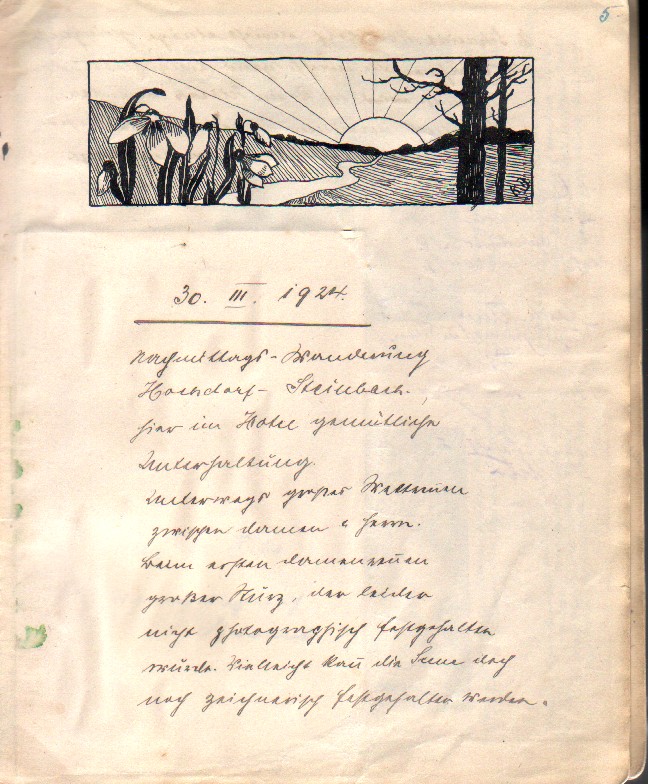 5
30. III. 1924.
Nachmittags-Wanderung
Hochdorf- Steinbach.
hier im Hotel gemütliche
Unterhaltung.
Unterwegs großes Wettrennen
zwischen Damen & Herrn.
Beim ersten Damenrennen
großer Sturz, der leider
nicht photographisch festgehalten
wurde. Vielleicht kann die Scene doch
noch zeichnerisch festgehalten werden.